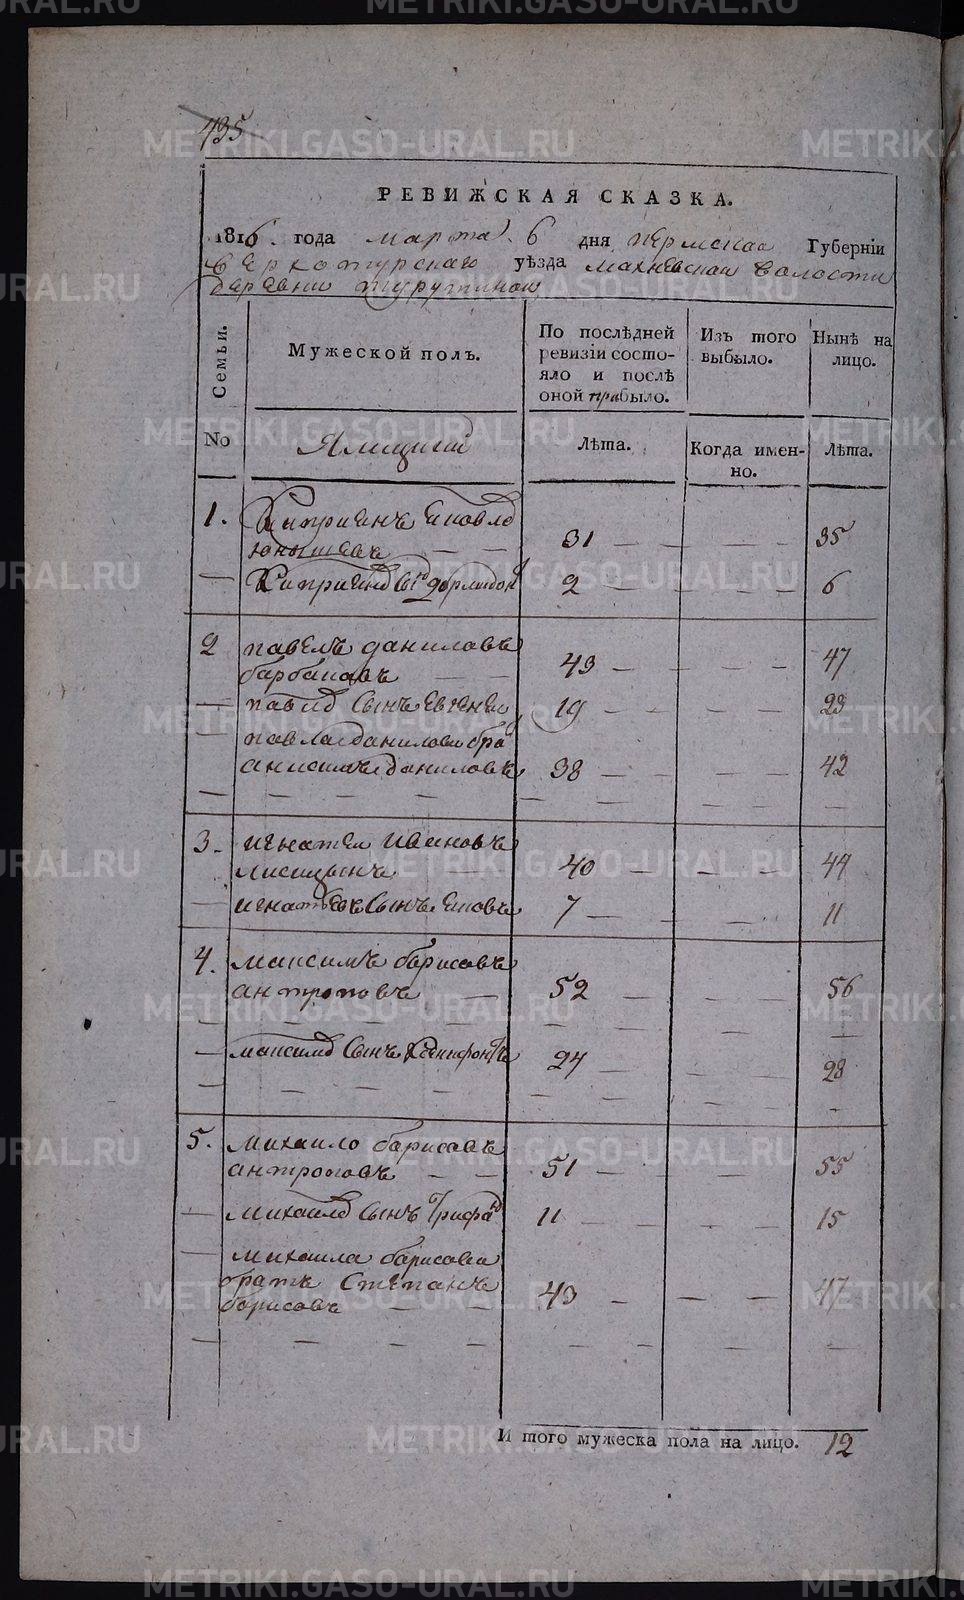 435
РЕВИЖСКАЯ СКАЗКА.
1816. года марта 6 дня пермская Губернїи
верхотурскаго уѣзда махневскаи волости
деревни туругиной
Семьи.
Мужеской полъ.
По послѣдней ревизїи состояло и послѣ оной прибыло.
Изъ того выбыло.
Нынѣ на лицо.
No
Ямщики
Лѣта.
Когда именно.
Лѣта.
1. Киприянъ
юнышевъ — — 31 — — — — 35
— Киприяна 2 — — — — 6
2 павелъ даниловъ
барбаковъ — — 43 — — — — 47
— павла сынъ евгеней 19 — — — — 23
— павла данилова бра
анисимъ даниловъ 38 — — — — 42
— — — — — — — —
3. игнатеи ивановъ
лисицынъ — 40 — — — 44
— игнатьевъ сынъ 7 — — — 11
4. максимъ борисовъ
антроповъ — 52 — — — 56
— максима сынъ ксенифонтъ 24 — — — 28
— — — — — — —
5. михаило борисовъ
антроповъ — — 51 — — — 55
— михаила сынъ 11 — — — 15
— михаила борисова
братъ степанъ
борисовъ — — 43 — — — 47
— — — — — — —
И того мужеска пола на лицо. 12
METRIKI.GASO-URAL.RU